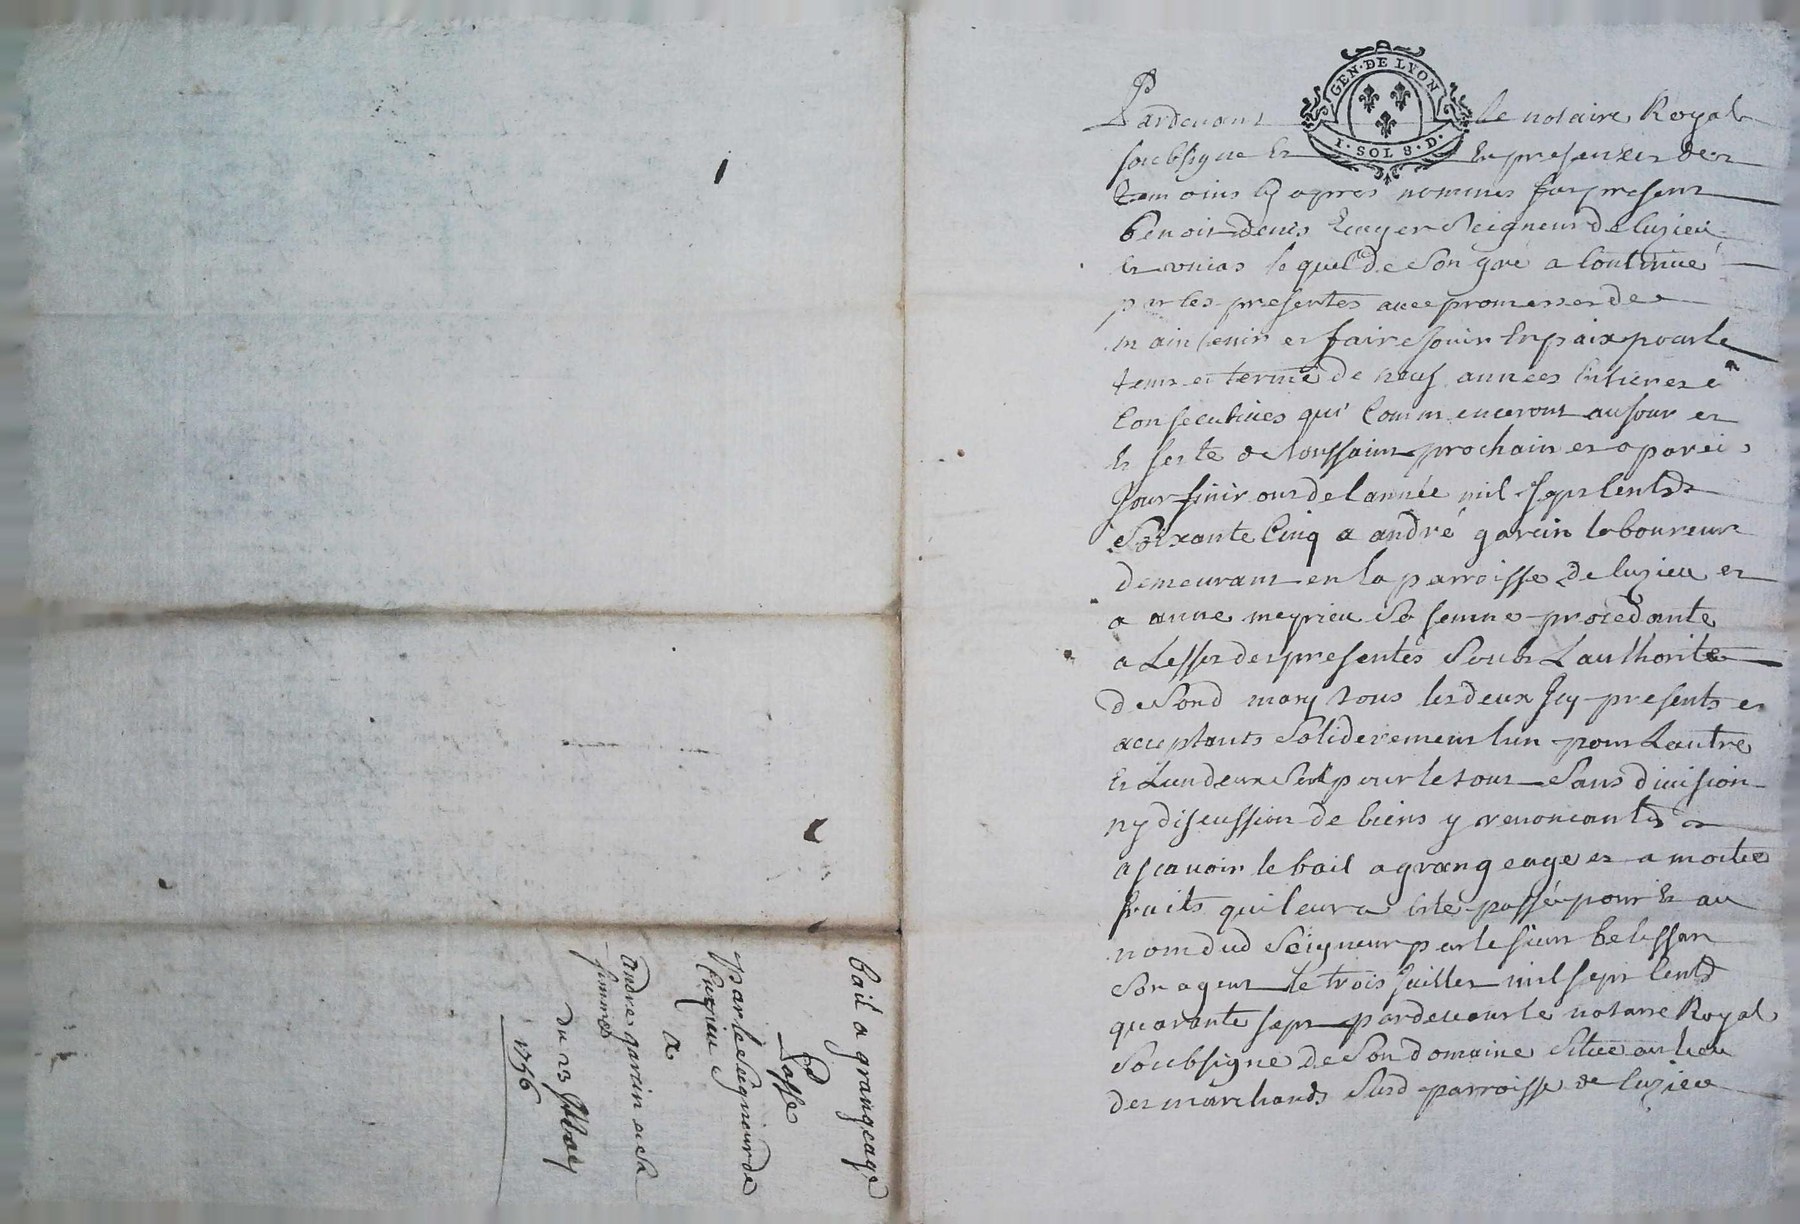 GEN·DE LYON
1·SOL 8·D·
Pardevant le notaire Royal
soubsigne et En presence des
temoins cy apres nommes fut present
benoit denis Ecuyer Seigneur de luzieu
et unias lequel de son gré a Continué
par les presentes avec promesse de
maintenir et faire jouir En paix pour le
tems et terme de neuf années Entieres e
Consecutives qui Commenceront au jour et
et feste de toussaint prochain et a pareil
Jour finiront de l'année mil sept Cents
Soixante Cinq a andré garcin laboureur
demeurant en la parroisse de luzieu et
a anne meyrieu Sa femme procedante
a L'effet des presentes Soub L'authorité
de Sond mary tous les deux Icy presents et
acceptants Soliderement lun pour Lautre
et Lun deux Seul pour le tout Sans division
ny discussion de biens y renoncants
a scavoir le bail a grangeage et a moitié
fruits qui leur a Esté passé pour Et au
nom dud Seigneur par le sieur belissan
Son agent le trois Juillet mil sept Cents
quarante sept pardevant le notaire Royal
Soubsigne de Son domaine Situé au lieu
des marchands Susd parroisse de luzieu
bail a grangeage
Passé
par le Seigneur de
Luzieu
a
André garcin et Sa
femme
du 23
1756